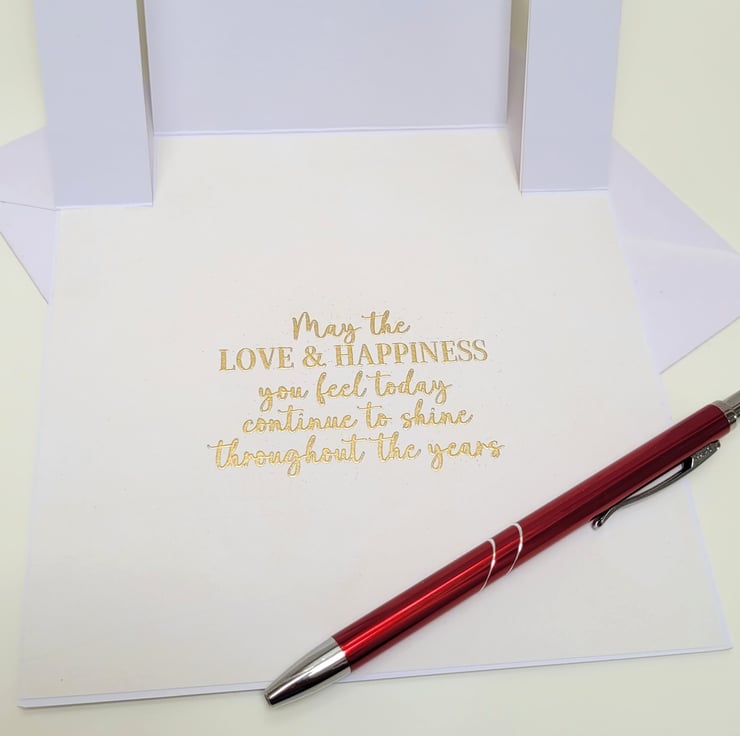 May the
LOVE & HAPPINESS
you feel today
continue to shine
throughout the years